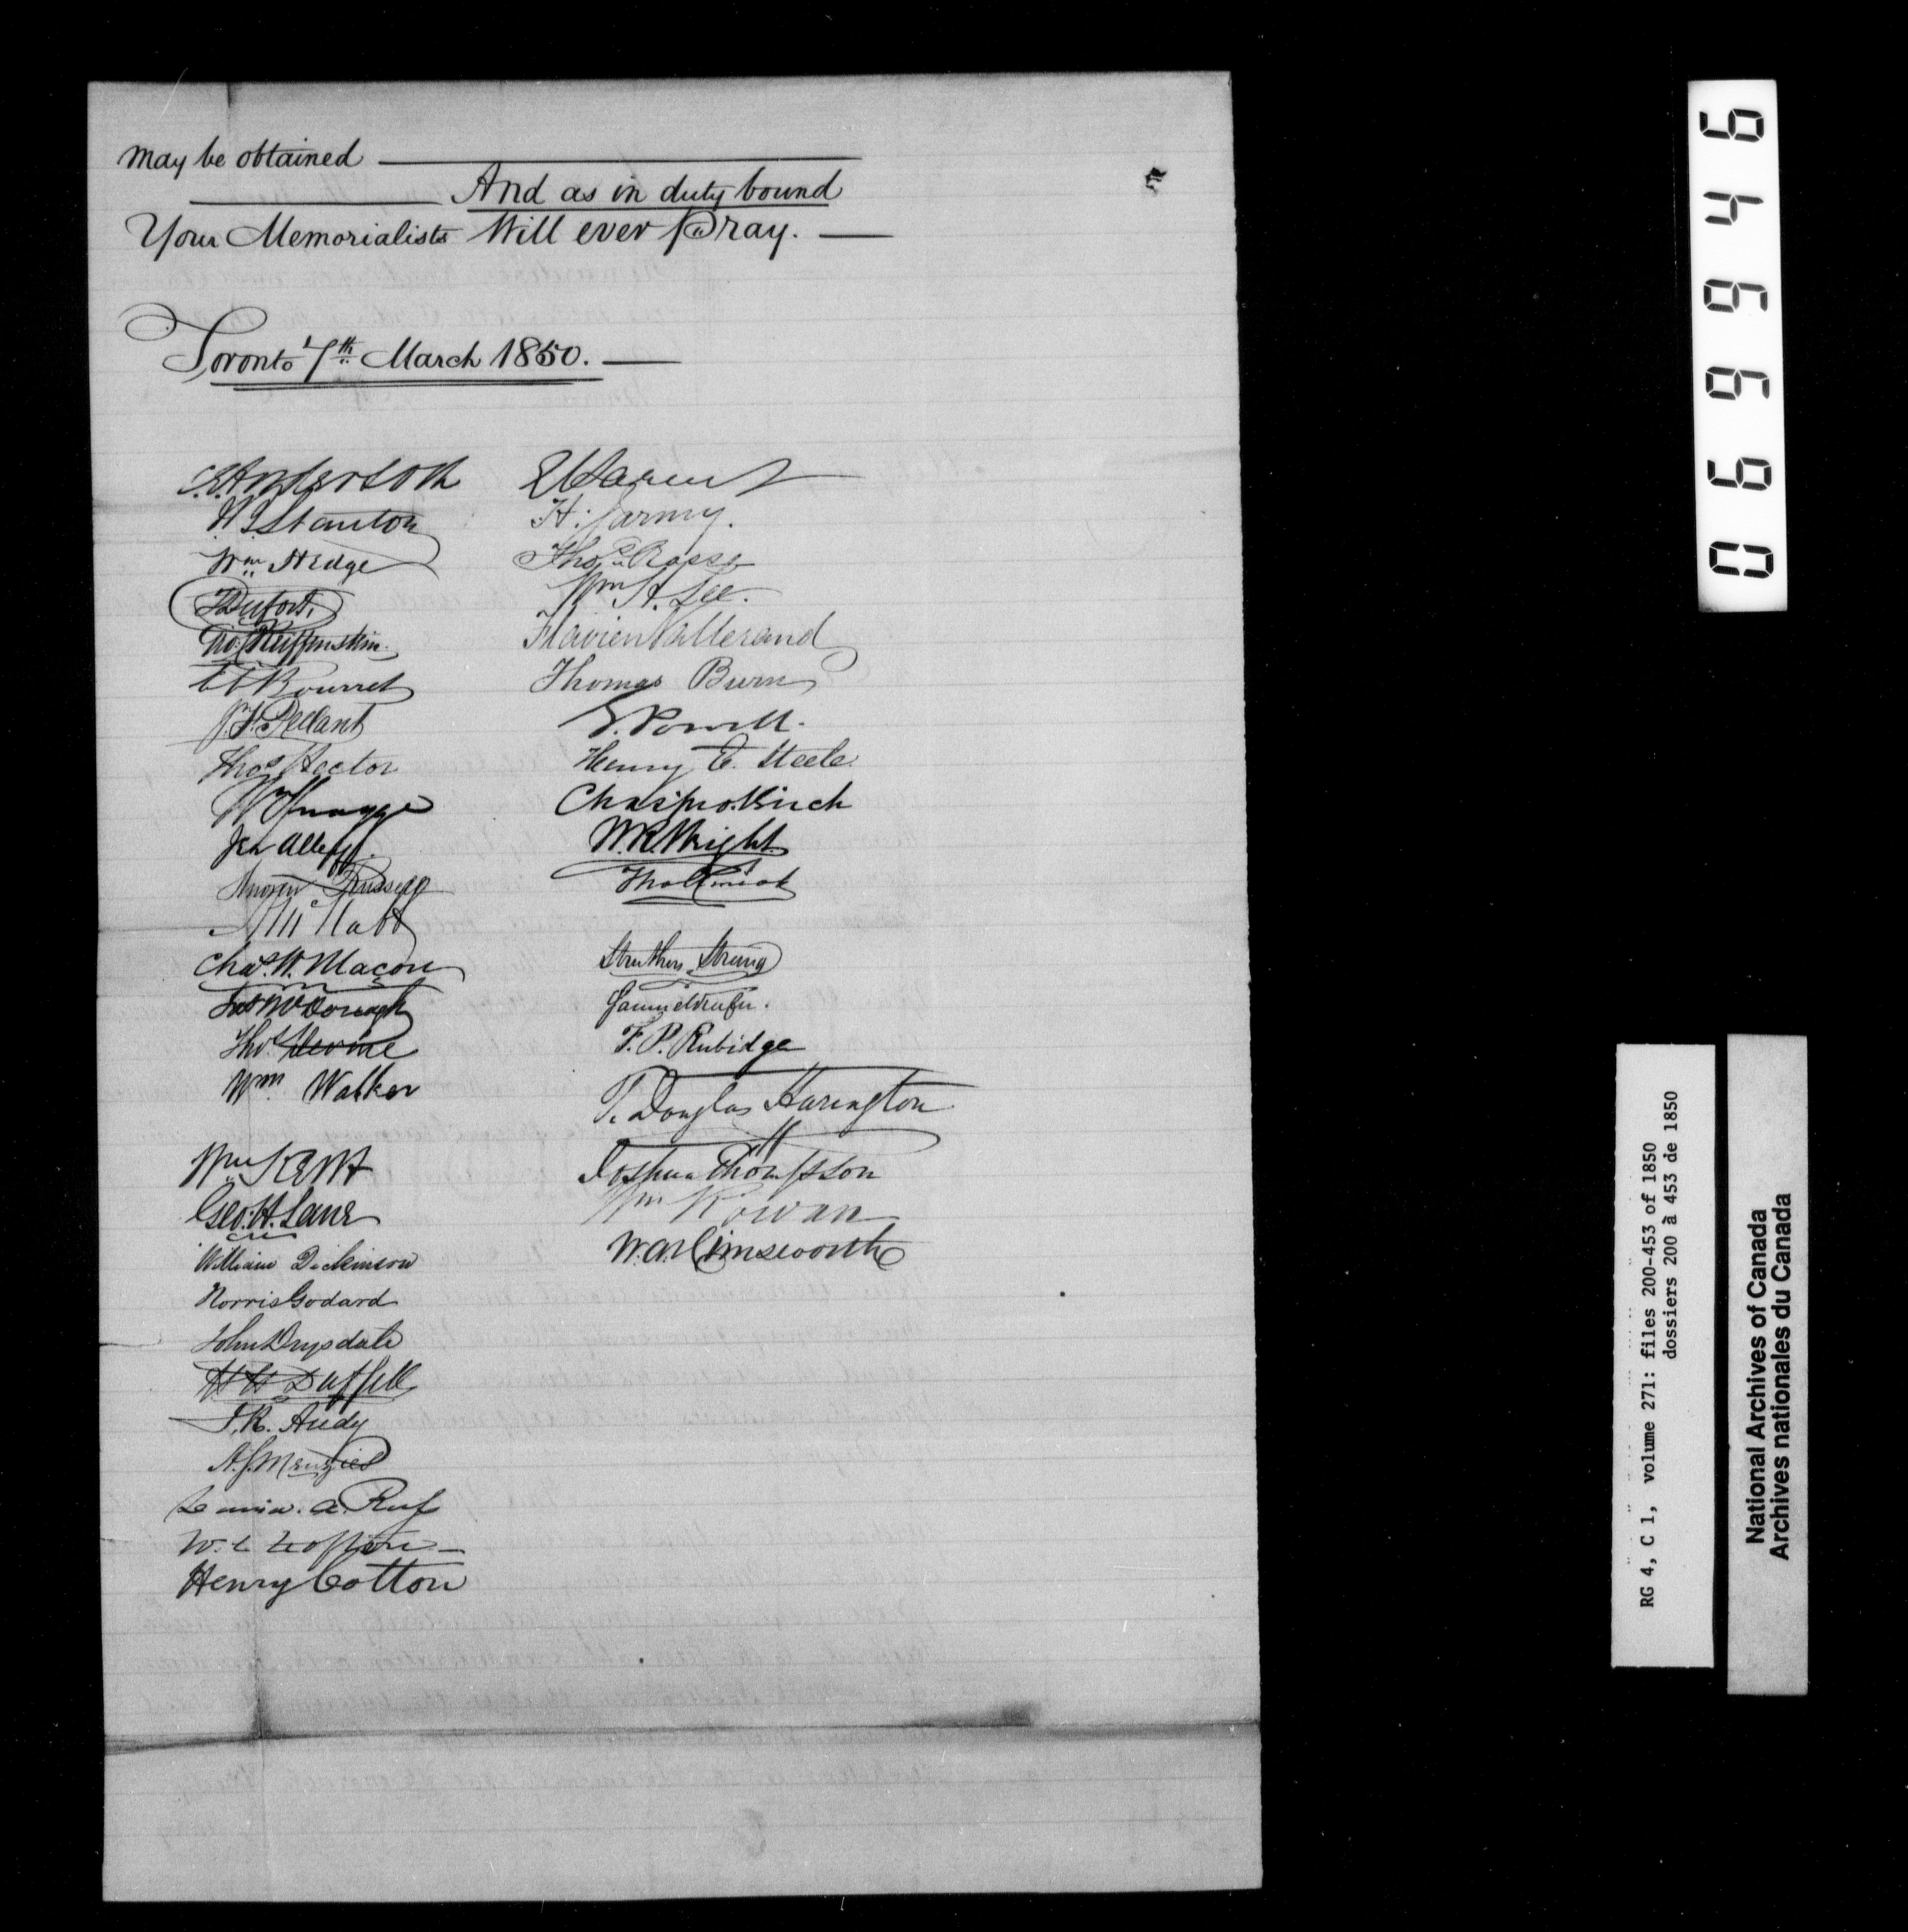 may be obtained
And as in duty bound
Your Memorialists Will ever Pray.
Toronto 7th March 1850.
C.E. Anderson
Stanton
Wm Hedge
T Dufort
Geo Reiffenstein
Bourret
Thos Hector
Andrew Russell
Chas. W. Macon
Jas McDonagh
Thos Devine
Wm Walker
Wm Kent
Geo. H. Lane
William Dickinson
Norris Godard
John Drysdale
H H Duffill
J. R. Audy
A. J. Menzies
Henry Cotton
E Parent
H. Jarmy.
Thos Rosse
Wm H. Lee.
Flavien Vallerand
Thomas Burns
G. Powell.
Henry E. Steele
Chas Jno. Birch
W.R. Wright
Struthers Strang
F. P. Rubidge
T. Douglas Harington
Joshua Thompson
Wm Rowan
W.A. Himsworth
069946
RG 4, C 1, volume 271: files 200-453 of 1850
dossiers 200 à 453 de 1850
National Archives of Canada
Archives nationales du Canada